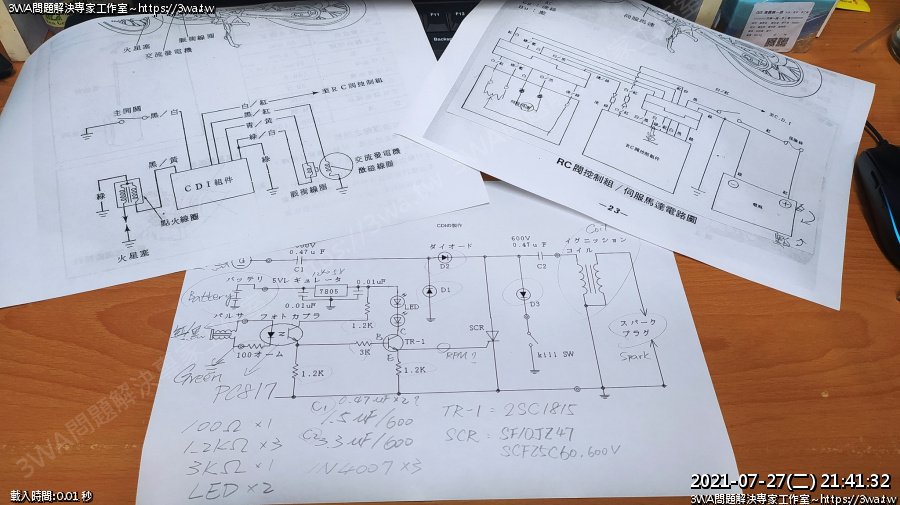 3WA問題解決專家工作室~https://3wa.tw
火星塞
交流發電機
脈衝線圈
主開關
黑／白
白／紅
至RC閥控制組
黑／紅
青／黃
綠／白
黑／黃
綠
綠
CDI組件
交流發電機
激磁線圈
脈衝線圈
點火線圈
火星塞
伺服馬達
F11
F12
RC閥控制組件
RC閥控制組／伺服馬達電路圖
—23—
CDIの製作
0.47uF
C1
ダイオード
D2
600V
0.47uF
C2
Coil
イグニッション
コイル
バッテリ
5Vレギュレータ
Battery
7805
0.01uF
0.01uF
LED
D1
D3
パルサ
フォトカプラ
1.2K
TR-1
SCR
スパーク
プラグ
Spark
100オーム
3K
B
C
E
RPM?
kill SW
Green
1.2K
1.2K
PC817
100Ω ×1
1.2KΩ ×3
3KΩ ×1
LED ×2
C1 0.47uF×2?
1.5uF/600
C2 3.3uF/600
1N4007×3
TR-1 = 2SC1815
SCR = SF10JZ47
SCF25C60.600V
3WA問題解決專家工作室
載入時間:0.01 秒
2021-07-27(二) 21:41:32
3WA問題解決專家工作室~https://3wa.tw